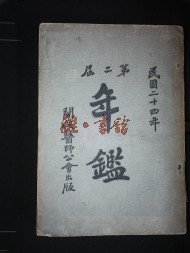 民國二十四年
第二屆
年鑑
醫師公會出版